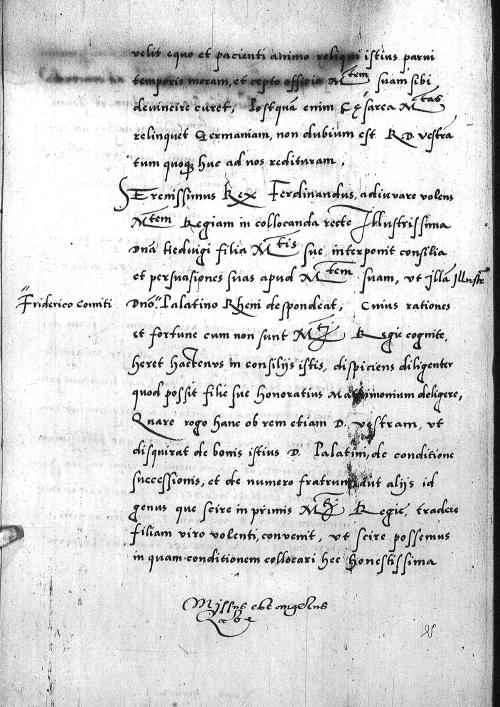 velit equo et pacienti animo reliqui istius parui
temporis moram, et cepto officio M^tem suam sibi
deuincire curet, Postquã enim Cęsarea M^tas
relinquet Germaniam, non dubium est R D. vestra
tum quoqȝ huc ad nos redituram,
SErenissimus Rex Ferdinandus, adiuvare volens
M^tem Regiam in collocanda recte Illustrissima
Dnã Heduigi filia M^tis sue, interponit consilia
et persuasiones suas apud M^tem suam, ut illã Illustr
" Friderico Comiti
Dnõ " Palatino Rheni despondeat, Cuius rationes
et fortune cum non sunt M^ti Regie cognite,
heret hactenus in consilijs istis, dispiciens diligenter
quod possit filie sue honoratius matrimonium deligere,
Quare rogo hanc ob rem etiam D. vestram, ut
disquirat de bonis istius D. Palatini, de conditione
successionis, et de numero fratrum, aut alijs id
genus que scire in primis M^ti Regie, tradere
filiam viro volenti, convenit, ut scire possemus
in quam conditionem collocari hec honestissima
Missus est angelus